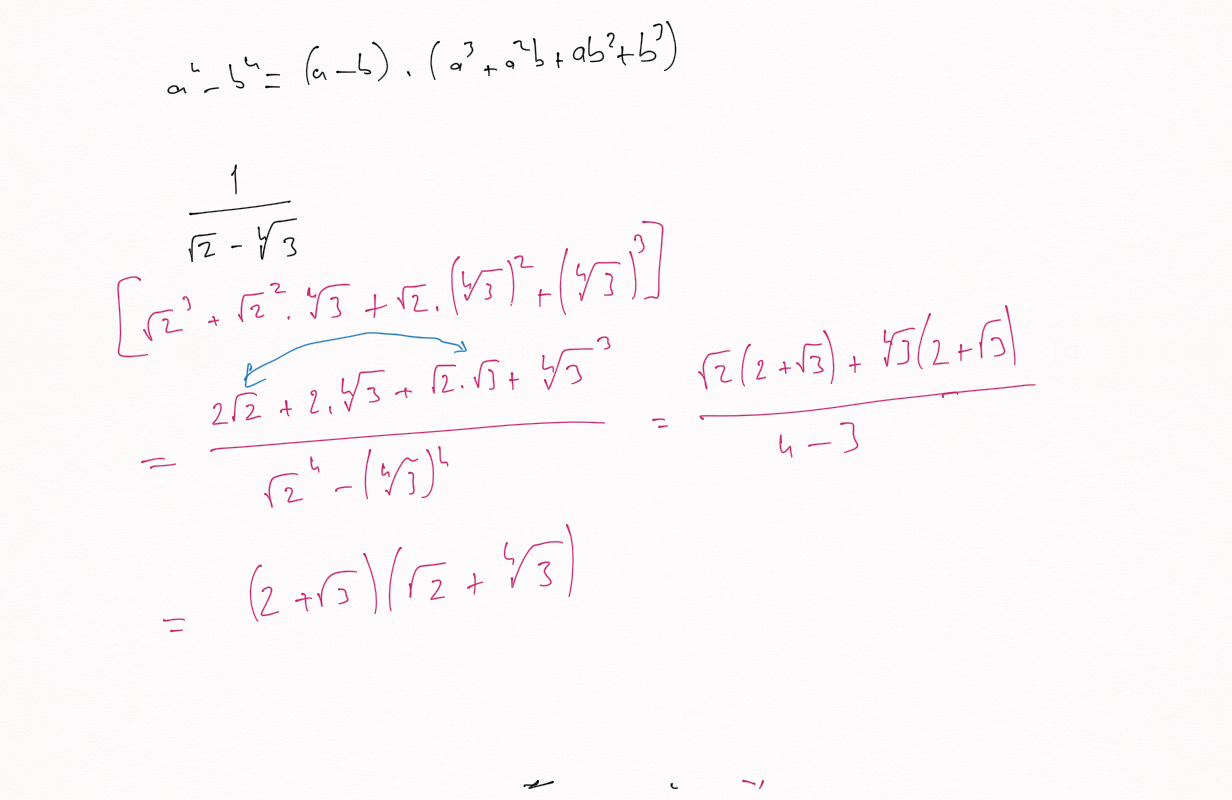 a⁴ - b⁴ = (a - b) . (a³ + a²b + ab² + b³)
1
√2 - ⁴√3
[√2³ + √2² . ⁴√3 + √2 . (⁴√3)² + (⁴√3)³]
= (2√2 + 2 . ⁴√3 + √2 . √3 + ⁴√3³) / (√2⁴ - (⁴√3)⁴) = (√2(2 + √3) + ⁴√3(2 + √3)) / (4 - 3)
= (2 + √3)(√2 + ⁴√3)